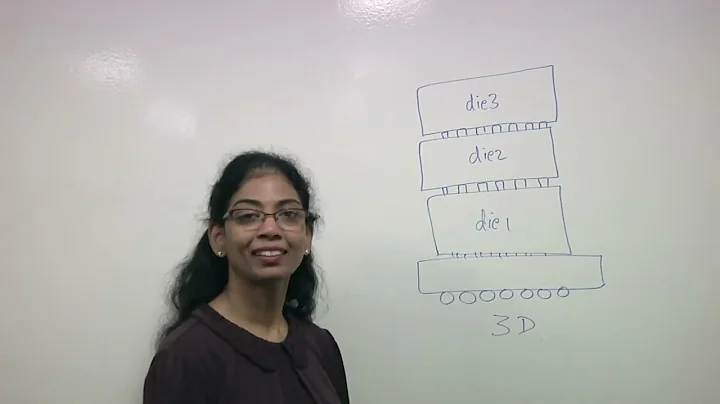 die3
die2
die1
3D